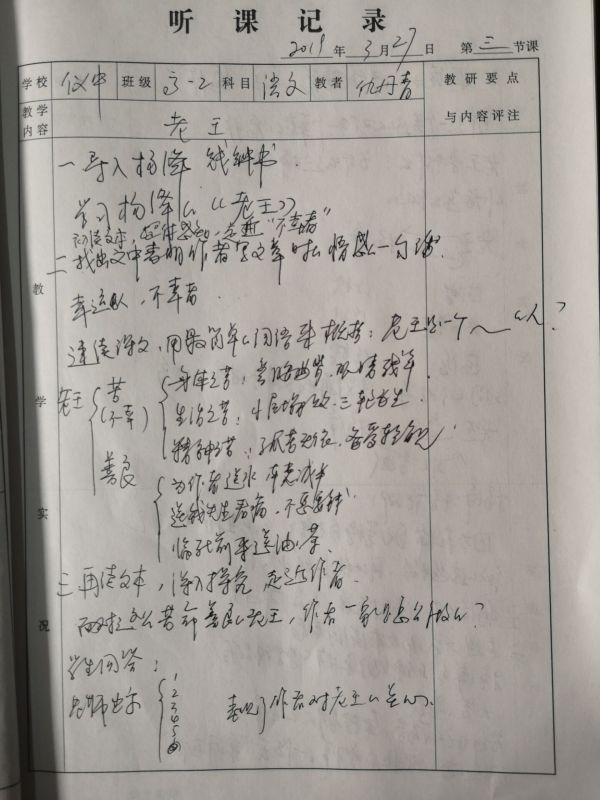 听课记录
2019年3月27日 第三节课
学校 仪中 班级 高一2 科目 语文 教者 仇丹青 教研要点
教学内容 老王 与内容评注
一 导入 杨绛 钱钟书
学习杨绛的《老王》
初读文本,走近“不幸者”
二 找出文中表明作者写文章时的情感一句话.
幸运的人,不幸者.
速读课文,用最简单的词语来概括:老王是一个~的人?
教学实况
老王 苦(不幸) 身体之苦:眼睛残疾.
生活之苦:三轮为生.
精神之苦:
善良 为作者送水 车费减半
送钱先生看病,不要车钱
临死前来送油.
三 再读文本,深入探究 走近作者.
面对这么苦命善良的老王,作者一家是怎么做的?
学生回答:
老师出示 1 2 3 4 5 6 表现作者对老王的关心.